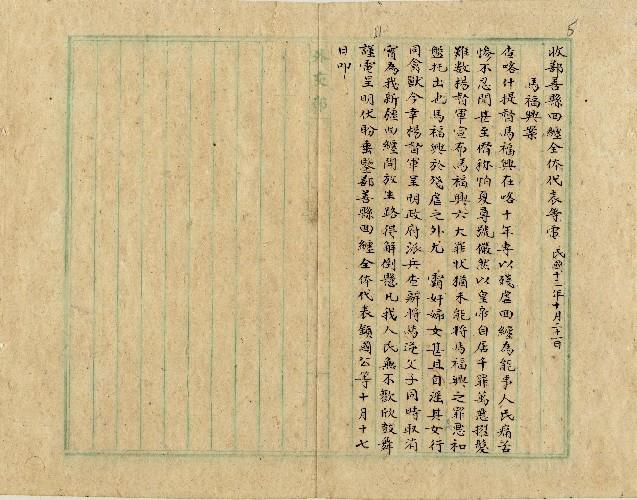 5
收鄯善縣回纏全体代表等電 民國十三年十月二十一日
馬福興案
查喀什提督馬福興在喀十年專以殘虐回纏為能事人民痛苦
慘不忍聞甚至僭称怕夏尊號儼然以皇帝自居千罪萬惡擢髮
難数楊督軍宣布馬福興六大罪状猶未能將馬福興之罪惡和
盤托出也馬福興於殘虐之外尤 霸奸婦女甚且自淫其女行
同禽獸今幸楊督軍呈明政府派兵查辦將馬逆父子同時取消
實為我新疆回纏開放生路得解倒懸凡我人民無不歡欣鼓舞
謹電呈明伏盼垂鑒鄯善縣回纏全体代表鎮國公等十月十七
日叩
外交部